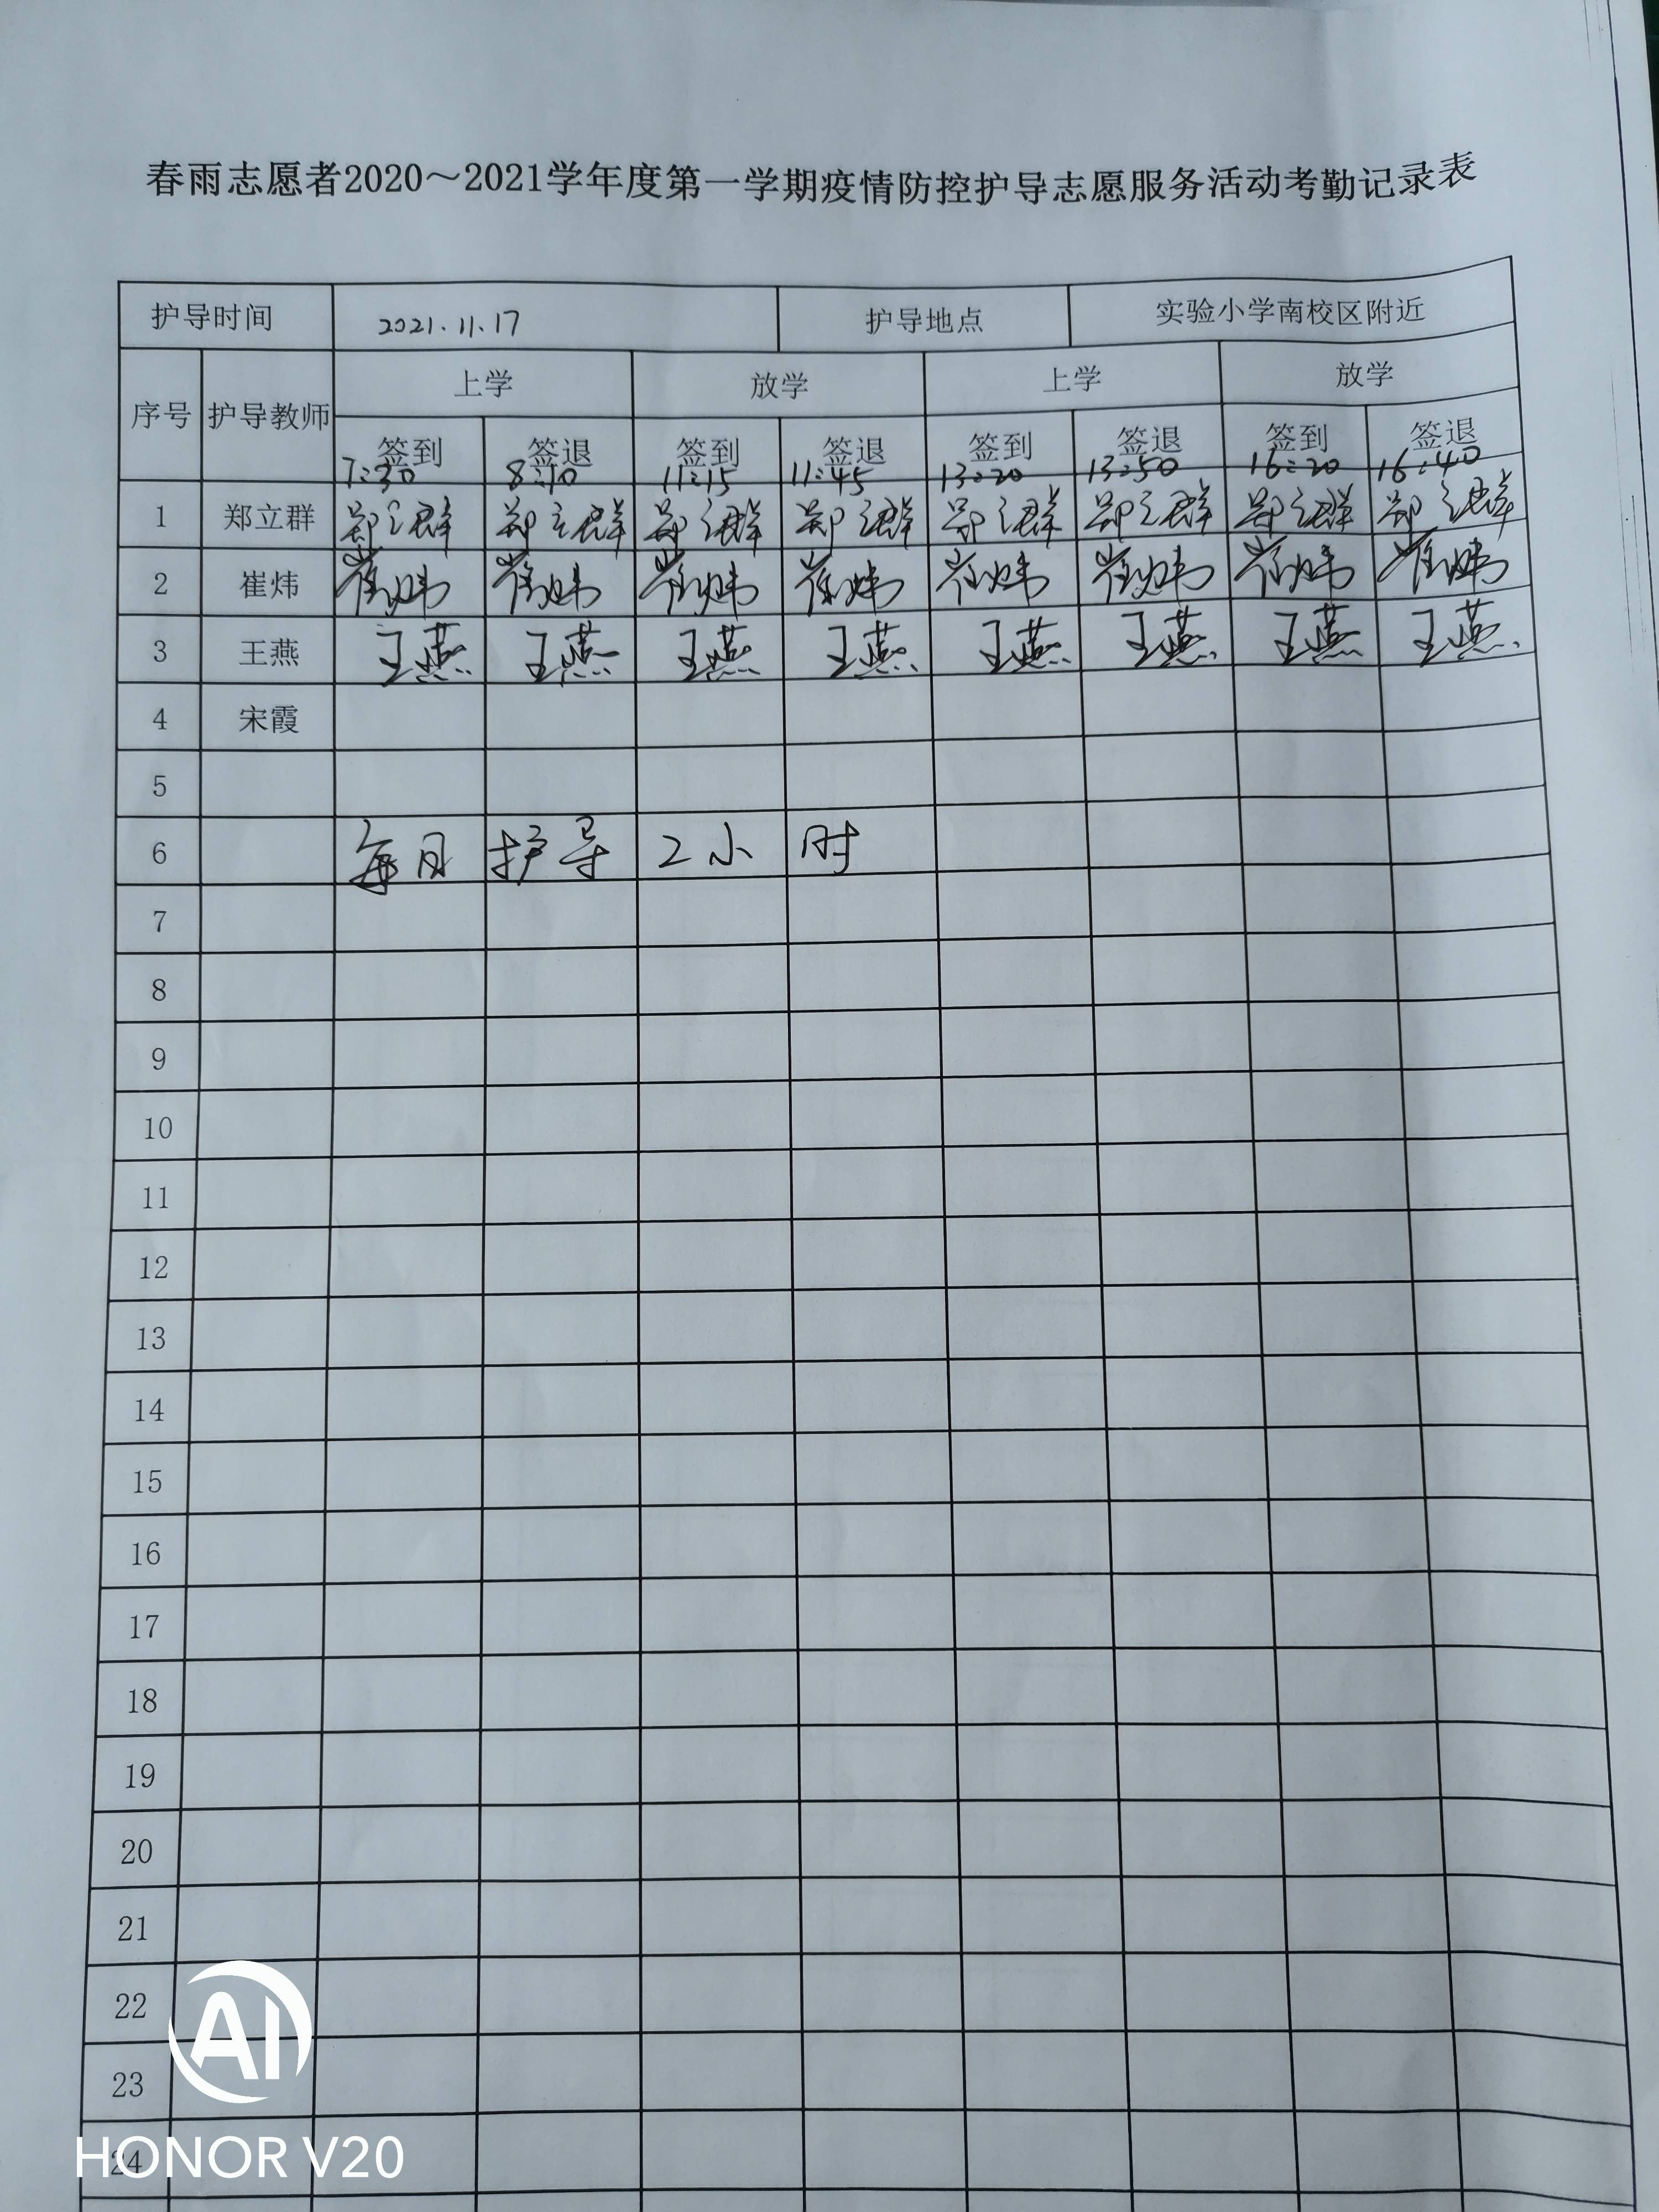 春雨志愿者2020～2021学年度第一学期疫情防控护导志愿服务活动考勤记录表
护导时间 2021.11.17 护导地点 实验小学南校区附近
序号 护导教师 上学 放学 上学 放学
签到 签退 签到 签退 签到 签退 签到 签退
7:30 8:10 11:15 11:45 13:20 13:50 16:20 16:40
1 郑立群 郑立群 郑立群 郑立群 郑立群 郑立群 郑立群 郑立群 郑立群
2 崔炜 崔炜 崔炜 崔炜 崔炜 崔炜 崔炜 崔炜 崔炜
3 王燕 王燕 王燕 王燕 王燕 王燕 王燕 王燕 王燕
4 宋霞
5
6 每日护导2小时
7
8
9
10
11
12
13
14
15
16
17
18
19
20
21
22
23
24
AI
HONOR V20